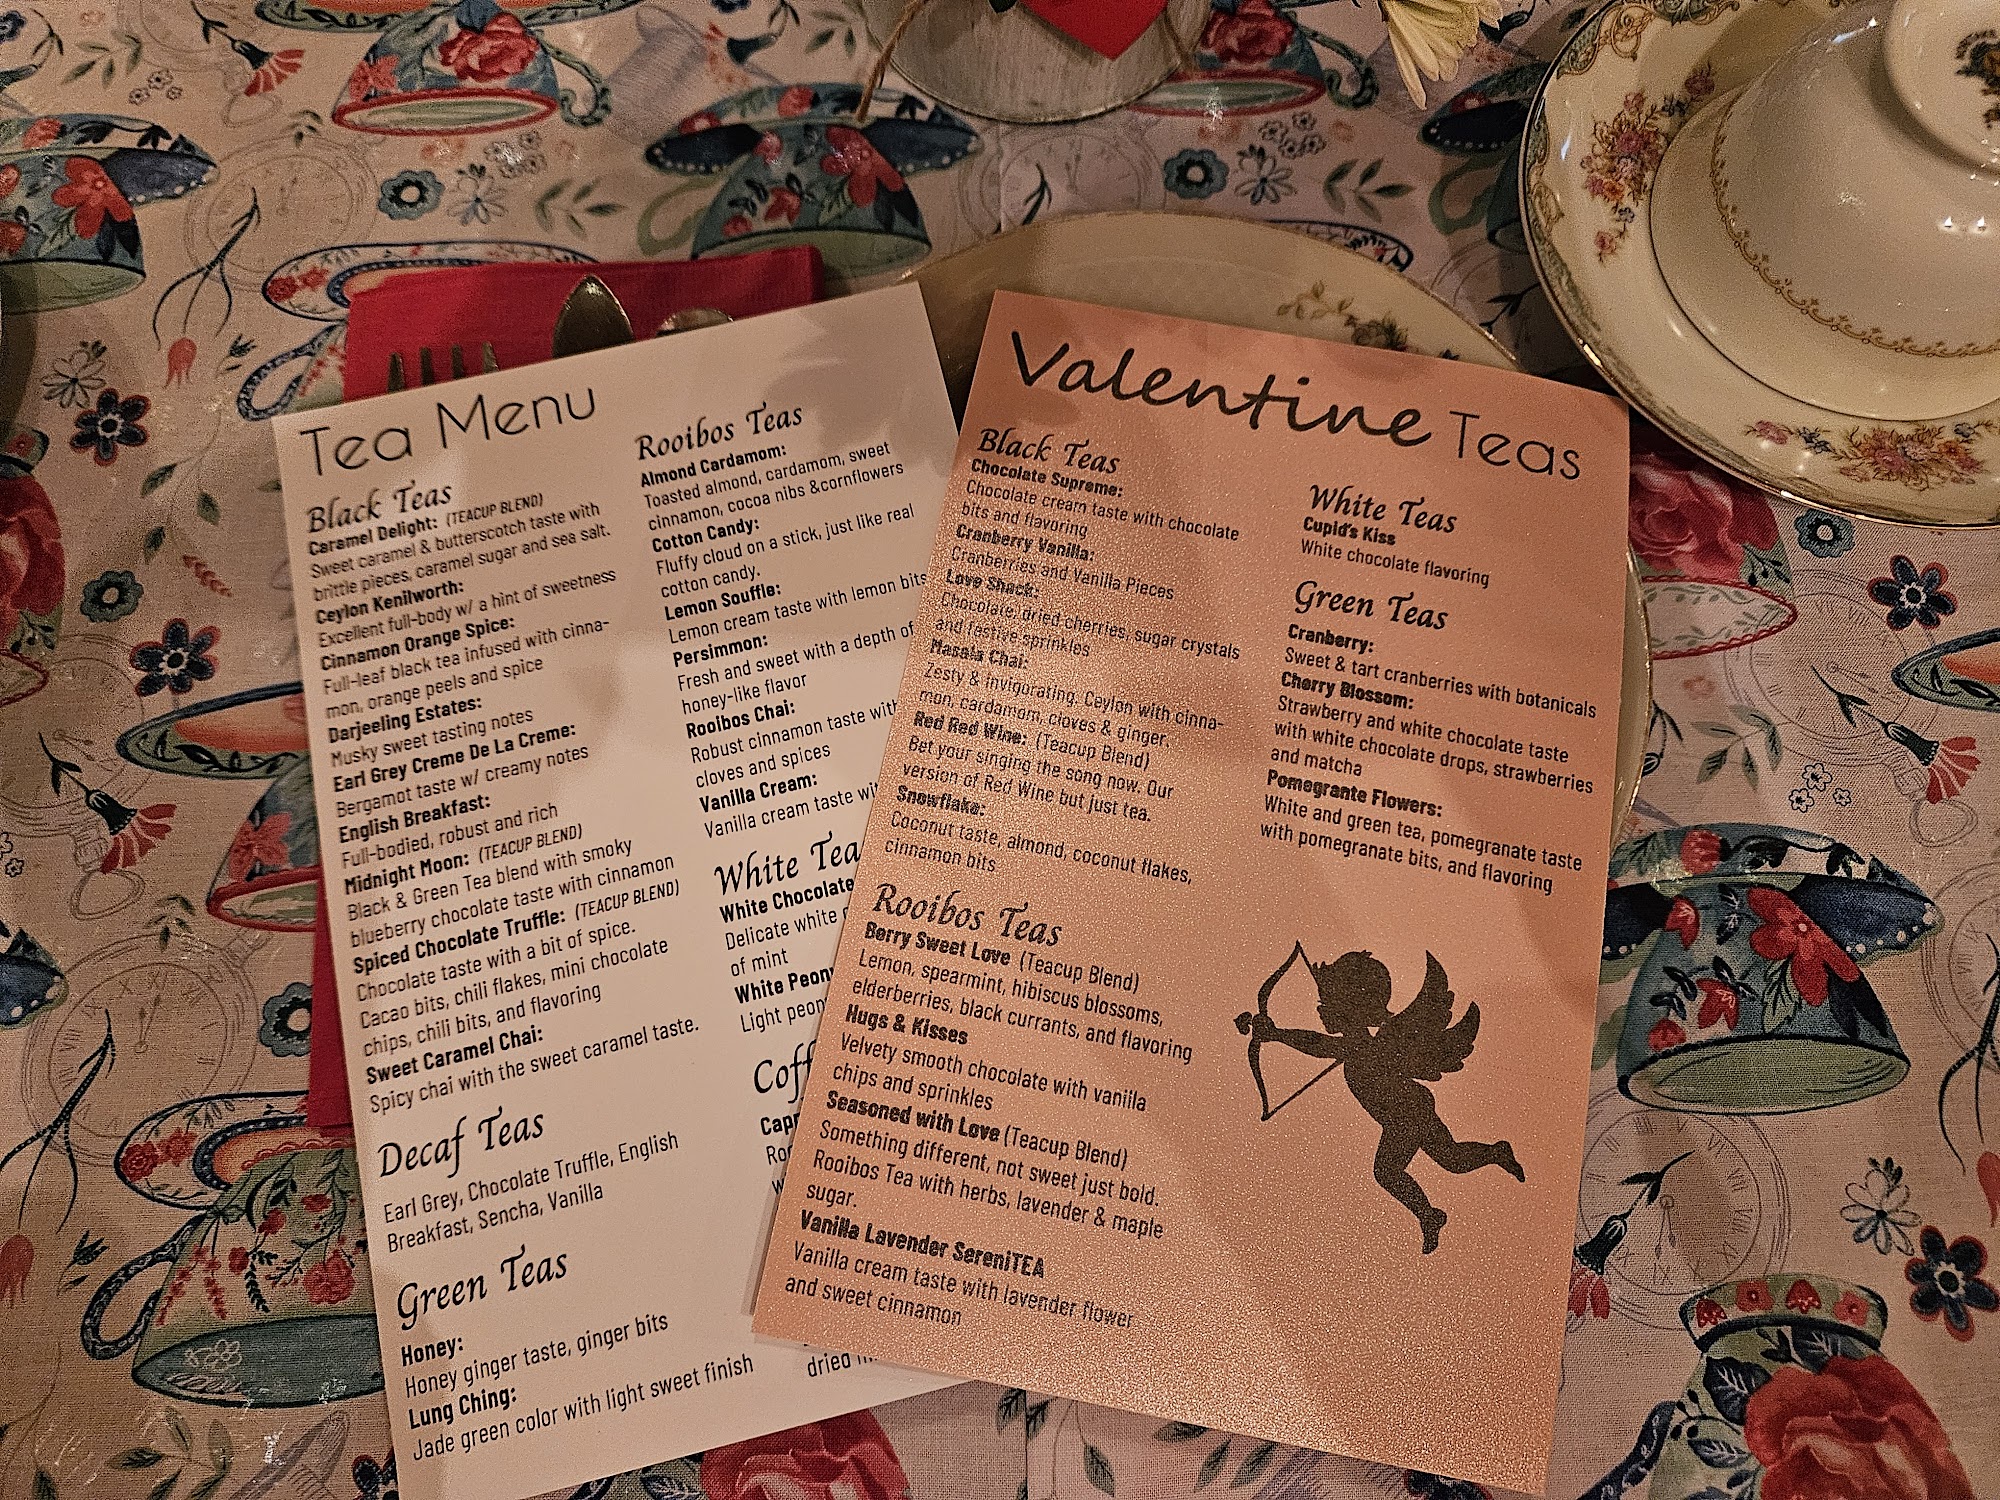 Tea Menu
Black Teas
Caramel Delight: (TEACUP BLEND)
Sweet caramel & butterscotch taste with
brittle pieces, caramel sugar and sea salt.
Ceylon Kenilworth:
Excellent full-body w/ a hint of sweetness
Cinnamon Orange Spice:
Full-leaf black tea infused with cinna-
mon, orange peels and spice
Darjeeling Estates:
Musky sweet tasting notes
Earl Grey Creme De La Creme:
Bergamot taste w/ creamy notes
English Breakfast:
Full-bodied, robust and rich
Midnight Moon: (TEACUP BLEND)
Black & Green Tea blend with smoky
blueberry chocolate taste with cinnamon
Spiced Chocolate Truffle: (TEACUP BLEND)
Chocolate taste with a bit of spice.
Cacao bits, chili flakes, mini chocolate
chips, chili bits, and flavoring
Sweet Caramel Chai:
Spicy chai with the sweet caramel taste.
Decaf Teas
Earl Grey, Chocolate Truffle, English
Breakfast, Sencha, Vanilla
Green Teas
Honey:
Honey ginger taste, ginger bits
Lung Ching:
Jade green color with light sweet finish
Rooibos Teas
Almond Cardamom:
Toasted almond, cardamom, sweet
cinnamon, cocoa nibs &cornflowers
Cotton Candy:
Fluffy cloud on a stick, just like real
cotton candy.
Lemon Souffle:
Lemon cream taste with lemon bits
Persimmon:
Fresh and sweet with a depth of
honey-like flavor
Rooibos Chai:
Robust cinnamon taste with
cloves and spices
Vanilla Cream:
Vanilla cream taste
White Tea
White Chocolate
Delicate white
of mint
White Peony
Light peon
Coff
Capp
dried
Valentine Teas
Black Teas
Chocolate Supreme:
Chocolate cream taste with chocolate
bits and flavoring
Cranberry Vanilla:
Cranberries and Vanilla Pieces
Love Shack:
Chocolate, dried cherries, sugar crystals
and festive sprinkles
Masala Chai:
Zesty & invigorating. Ceylon with cinna-
mon, cardamom, cloves & ginger.
Red Red Wine: (Teacup Blend)
Bet your singing the song now. Our
version of Red Wine but just tea.
Snowflake:
Coconut taste, almond, coconut flakes,
cinnamon bits
Rooibos Teas
Berry Sweet Love (Teacup Blend)
Lemon, spearmint, hibiscus blossoms,
elderberries, black currants, and flavoring
Hugs & Kisses
Velvety smooth chocolate with vanilla
chips and sprinkles
Seasoned with Love (Teacup Blend)
Something different, not sweet just bold.
Rooibos Tea with herbs, lavender & maple
sugar.
Vanilla Lavender SereniTEA
Vanilla cream taste with lavender flower
and sweet cinnamon
White Teas
Cupid's Kiss
White chocolate flavoring
Green Teas
Cranberry:
Sweet & tart cranberries with botanicals
Cherry Blossom:
Strawberry and white chocolate taste
with white chocolate drops, strawberries
and matcha
Pomegrante Flowers:
White and green tea, pomegranate taste
with pomegranate bits, and flavoring